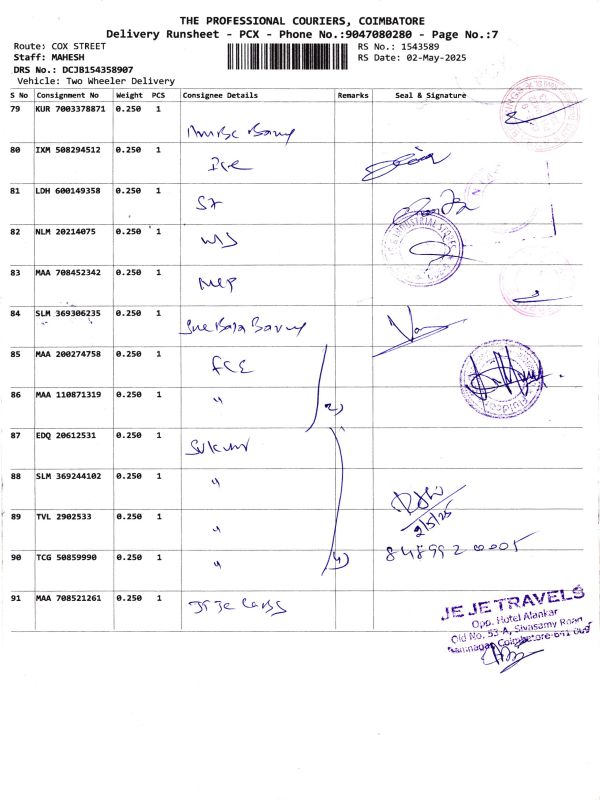 THE PROFESSIONAL COURIERS, COIMBATORE
Delivery Runsheet - PCX - Phone No.:9047080280 - Page No.:7
Route: COX STREET
Staff: MAHESH
DRS No.: DCJB154358907
Vehicle: Two Wheeler Delivery
RS No.: 1543589
RS Date: 02-May-2025
S No Consignment No Weight PCS Consignee Details Remarks Seal & Signature
79 KUR 7003378871 0.250 1
80 IXM 508294512 0.250 1
81 LDH 600149358 0.250 1
82 NLM 20214075 0.250 1
83 MAA 708452342 0.250 1
84 SLM 369306235 0.250 1
85 MAA 200274758 0.250 1 FCE
86 MAA 110871319 0.250 1 " 2)
87 EDQ 20612531 0.250 1
88 SLM 369244102 0.250 1 "
89 TVL 2902533 0.250 1 " 2/5/25
90 TCG 50859990 0.250 1 " 4) 8489920005
91 MAA 708521261 0.250 1
JE JE TRAVELS
Opp. Hotel Alankar
Old No. 53-A, Sivasamy Road
Ramnagar Coimbatore-641 009